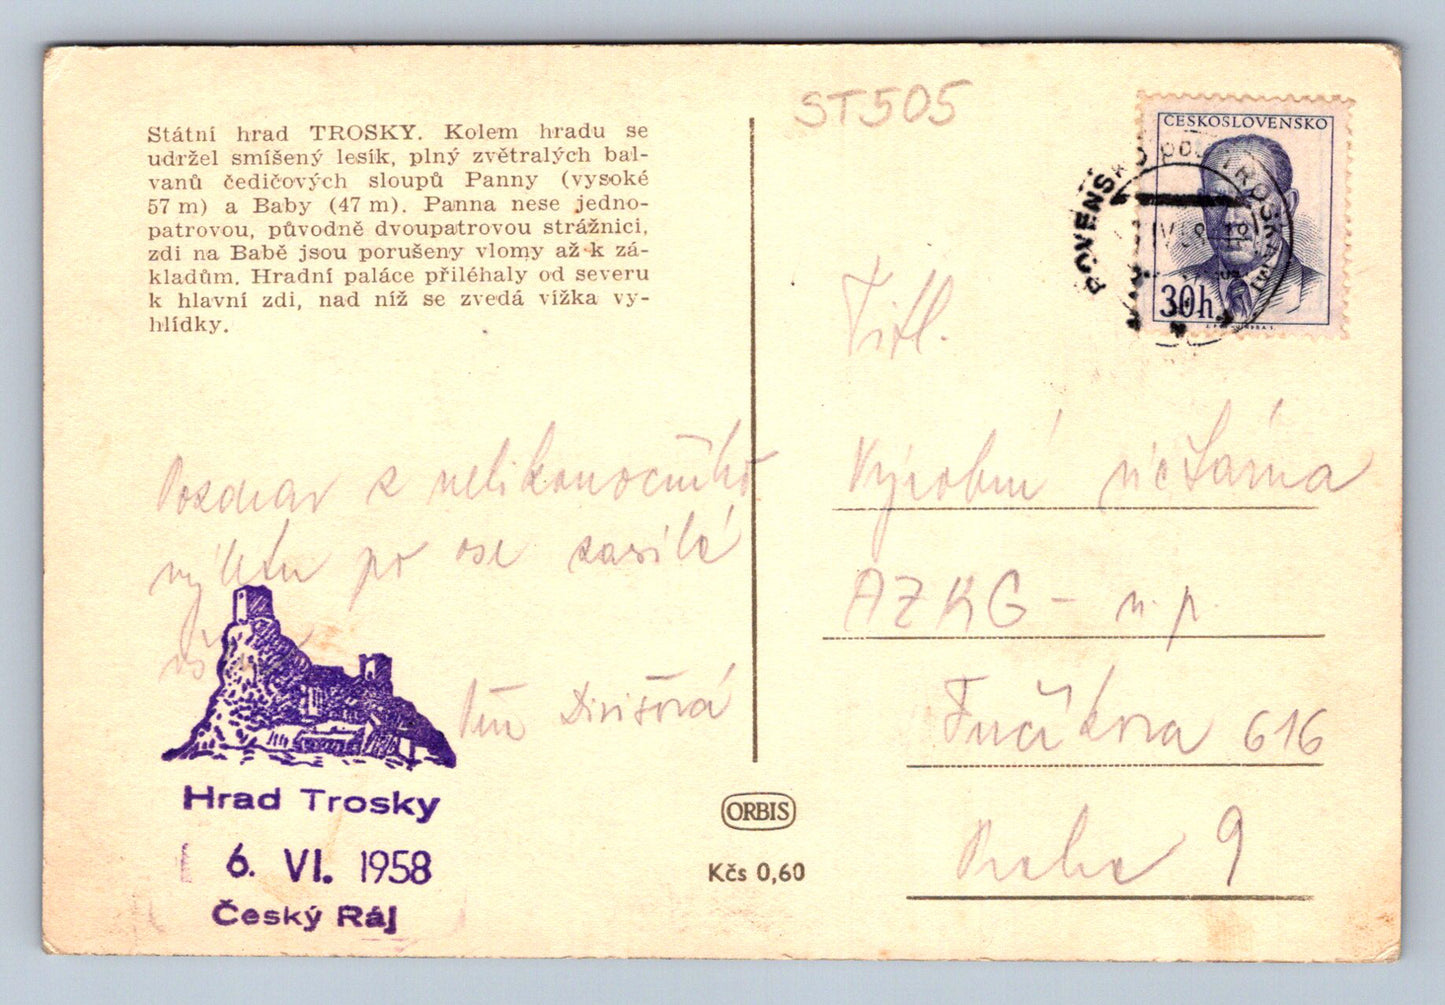 Státní hrad TROSKY. Kolem hradu se
udržel smíšený lesík, plný zvětralých bal-
vanů čedičových sloupů Panny (vysoké
57 m) a Baby (47 m). Panna nese jedno-
patrovou, původně dvoupatrovou strážnici,
zdi na Babě jsou porušeny vlomy až k zá-
kladům. Hradní paláce přiléhaly od severu
k hlavní zdi, nad níž se zvedá vížka vy-
hlídky.
Pozdrav z velikonočního
výletu po ose zasílá
Divišová
Hrad Trosky
6. VI. 1958
Český Ráj
ORBIS
Kčs 0,60
ST505
ČESKOSLOVENSKO
30h
ROVENSKO pod TROSKAMI
Titl.
Výrobní účtárna
AZKG - n.p.
Fučíkova 616
Praha 9